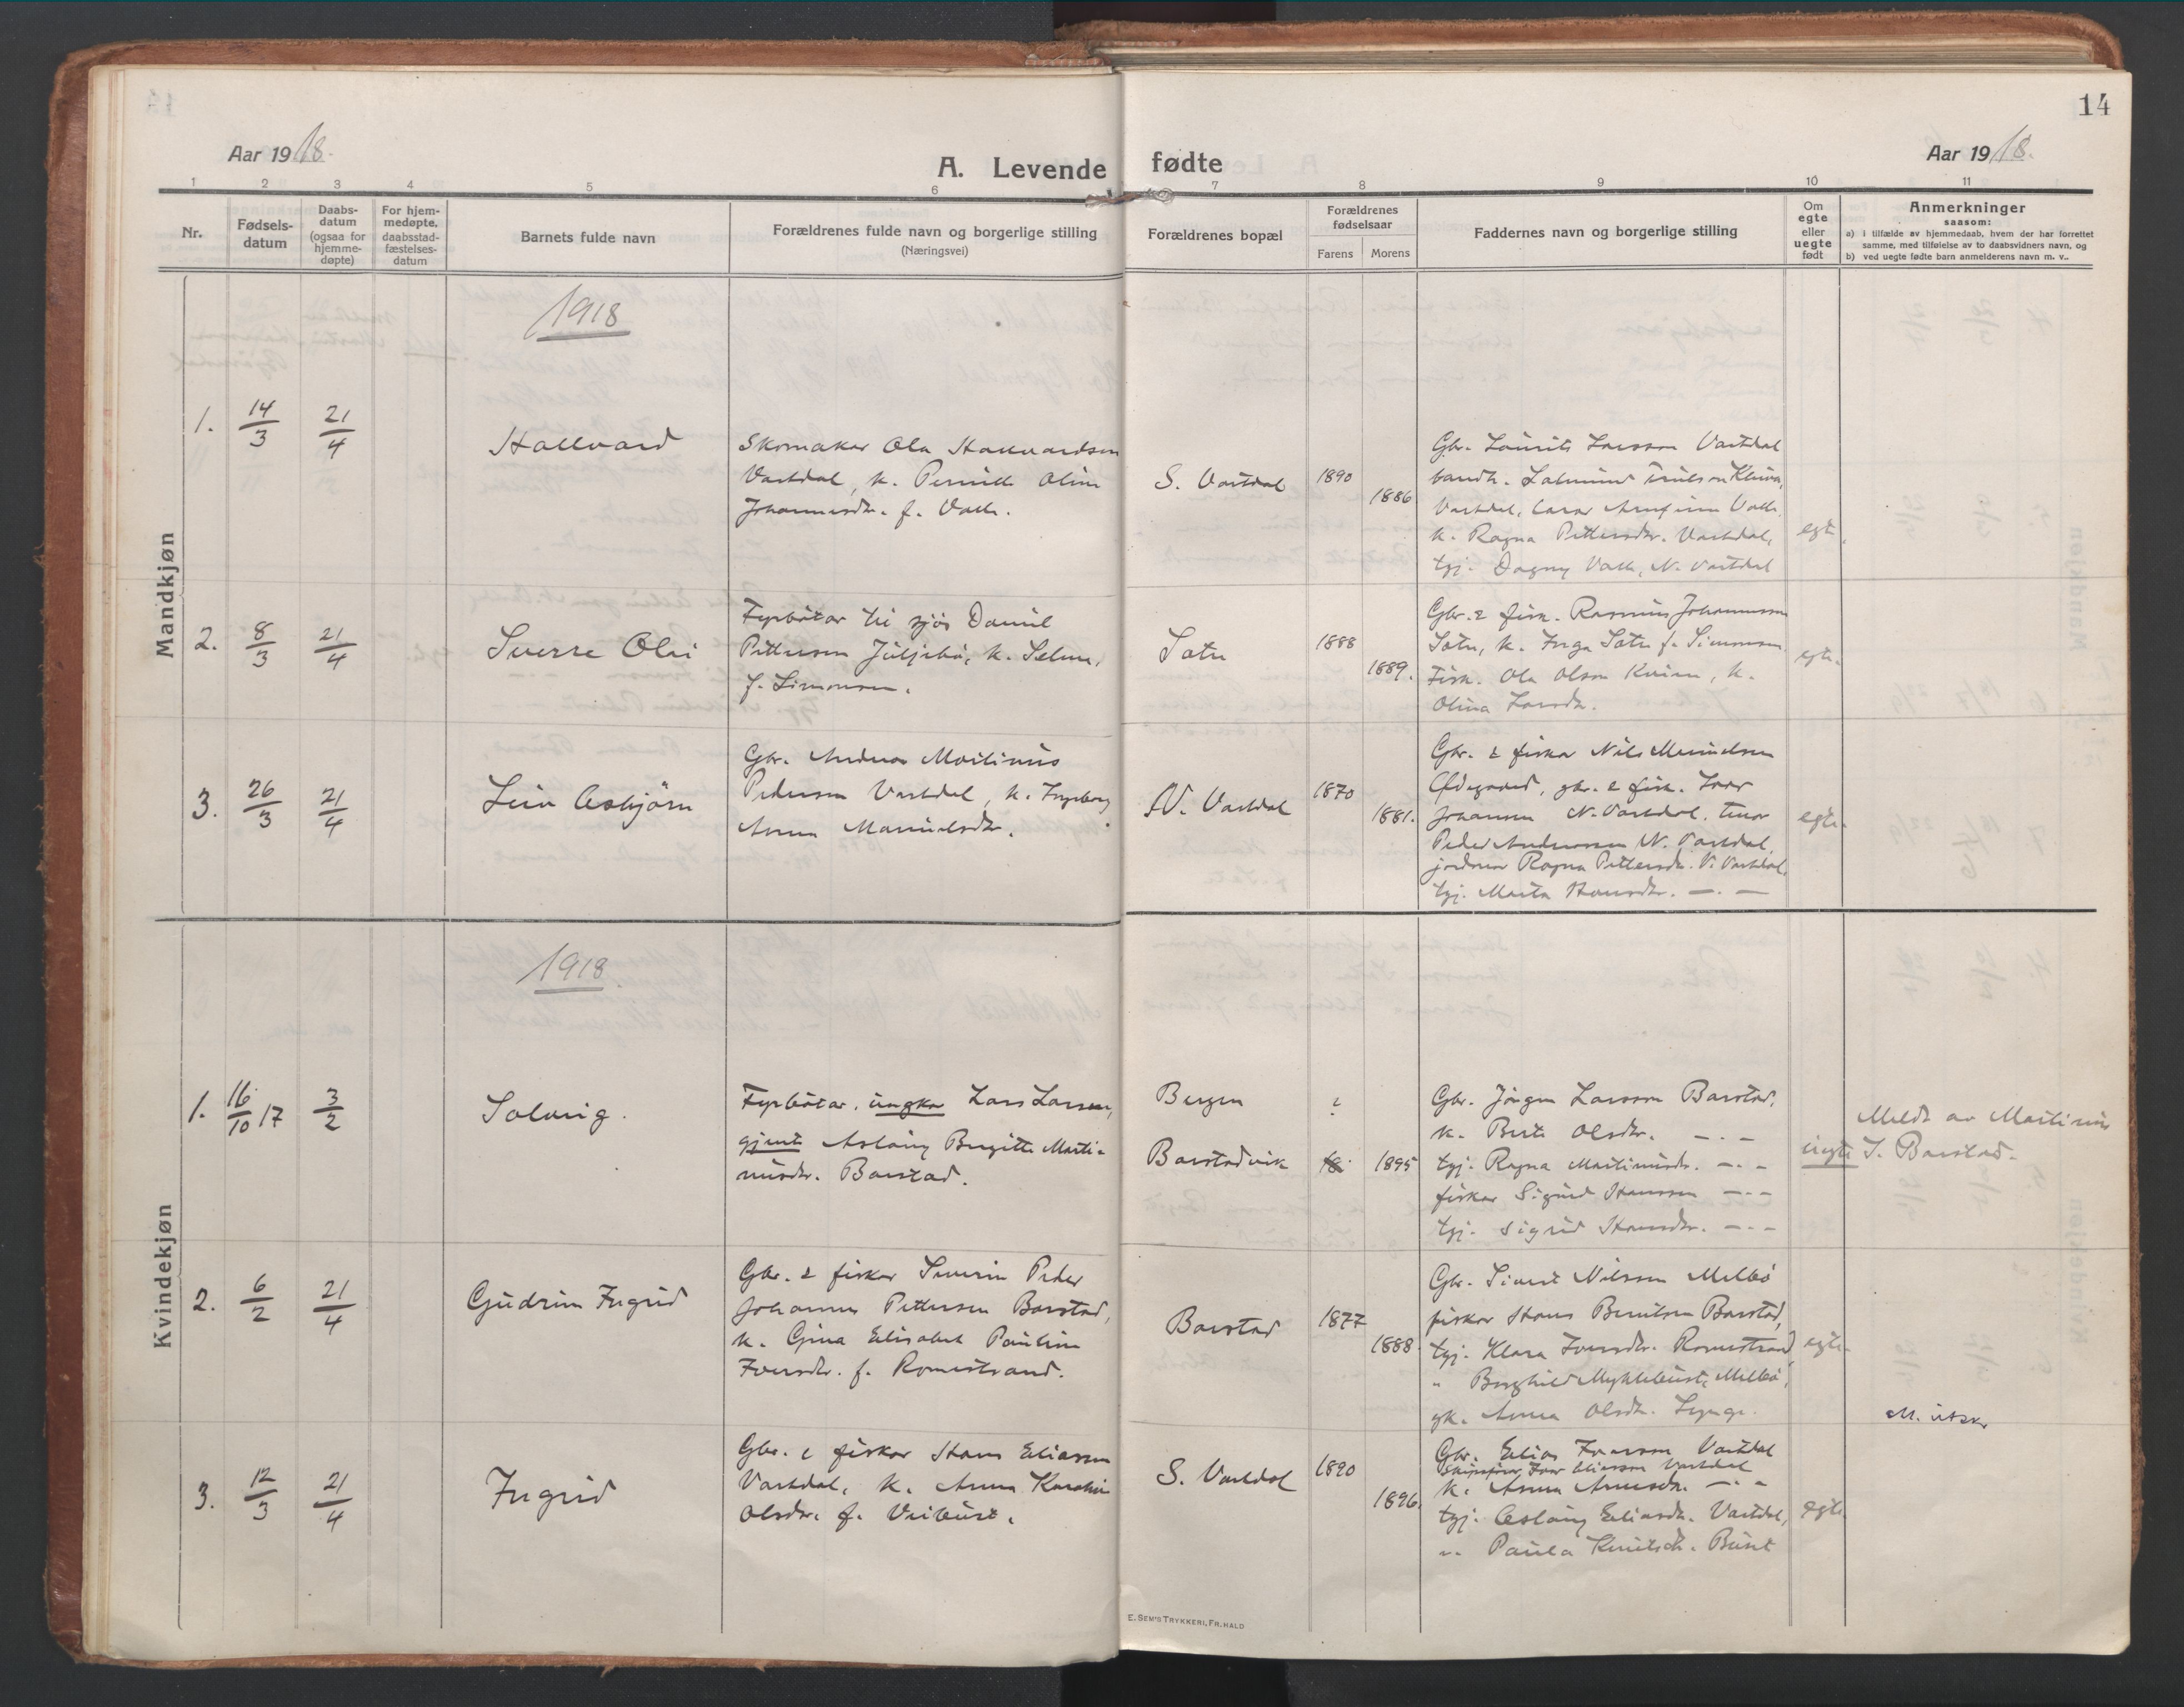 14
Aar 1918.
A. Levende fødte
Aar 1918.
1 2 3 4 5 6 7 8 9 10 11
Nr.
Fødsels-
datum
Daabs-
datum
(ogsaa for
hjemme-
døpte)
For hjem-
medøpte,
daabsstad-
fæstelses-
datum
Barnets fulde navn
Forældrenes fulde navn og borgerlige stilling
(Næringsvei)
Forældrenes bopæl
Forældrenes
fødselsaar
Farens Morens
Faddernes navn og borgerlige stilling
Om
egte
eller
uegte
født
Anmerkninger
saasom:
a) i tilfælde av hjemmedaab, hvem der har forrettet
samme, med tilføielse av to daabsvidners navn, og
b) ved uegte fødte barn anmelderens navn m. v..
Mandkjøn
1918
1. 14/3 21/4
Hallvard
Skomakar Ola Hallvardson
Vartdal, k. Pernille Oline
Johannesdtr. f. Valle.
S. Vartdal
1890
1886
Gbr. Laurits Larsson Vartdal
Vartdal, Valle,
k. Ragna Pettersdtr. Vartdal,
tyj. Dagny Valle, N. Vartdal
egte.
2. 8/3 21/4
Sverre Olai
Fyrbøtar til sjøs Daniel
Pettersen k. Selma,
f. Simonsen.
Sætre
1888
1889.
Gbr. & fisk. Rasmus Johannessen
Sætre, k. Inga Sætre f. Simonsen
Fisk. Ola Olson k.
Olina Larsdtr.
egte.
3. 26/3 21/4
Leiv Asbjørn
Gbr. Andreas Martinus
Pedersen Vartdal, k. Ingeborg
Anna Manuelsdtr.
N. Vartdal
1870
1881.
Gbr. & fiskar Nils
Ødegaard, gbr. & fisk. Ivar
Johansen N. Vartdal,
Peder Andreassen N. Vartdal,
jordmor Ragna Pettersdtr. Vartdal,
tyj. Marta Hansdtr. —.—
egte.
Kvindekjøn
1918
1. 16/10 17 3/2
Solveig.
Fyrbøtar, ungkar Lars Larsen,
gjente Aslaug Birgitte Marti-
nusdtr. Barstad.
Bergen
Barstadvik
?
18
1895
Gbr. Jørgen Larsson Barstad,
k. Berte Olsdtr. —.—
tyj. Ragna Martinusdtr. —.—
fiskar Sigurd Hanssen —.—
tyj. Sigrid Hansdtr. —.—
uegte
Meldt av Martinus
J. Barstad.
2. 6/2 21/4
Gudrun Ingrid
Gbr. & fiskar Severin Peder
Johannes Pettersen Barstad,
k. Gina Elisabet Pauline
Iversdtr. f. Romestrand.
Barstad
1877
1888
Gbr. Sivert Nilssen Melbø
fiskar Hans Barstad,
tyj. Klara Iversdtr. Romestrand
" Borghild Myklebust, Melbø,
gk. Anna Olsdtr.
egte.
M. utskr
3. 12/3 21/4
Ingrid
Gbr. & fiskar Hans Eliassen
Vartdal, k. Anna Karoline
Olsdtr. f. Veibust.
S. Vartdal
1890
1896.
Gbr. Elias Vartdal
Skipsfører Ivar Eliassen Vartdal
k. Anna —.—
tyj. Aslaug Eliasdtr. Vartdal,
". Paula Knutsdtr. Bust
egte.
E. SEM'S TRYKKERI, FR.HALD